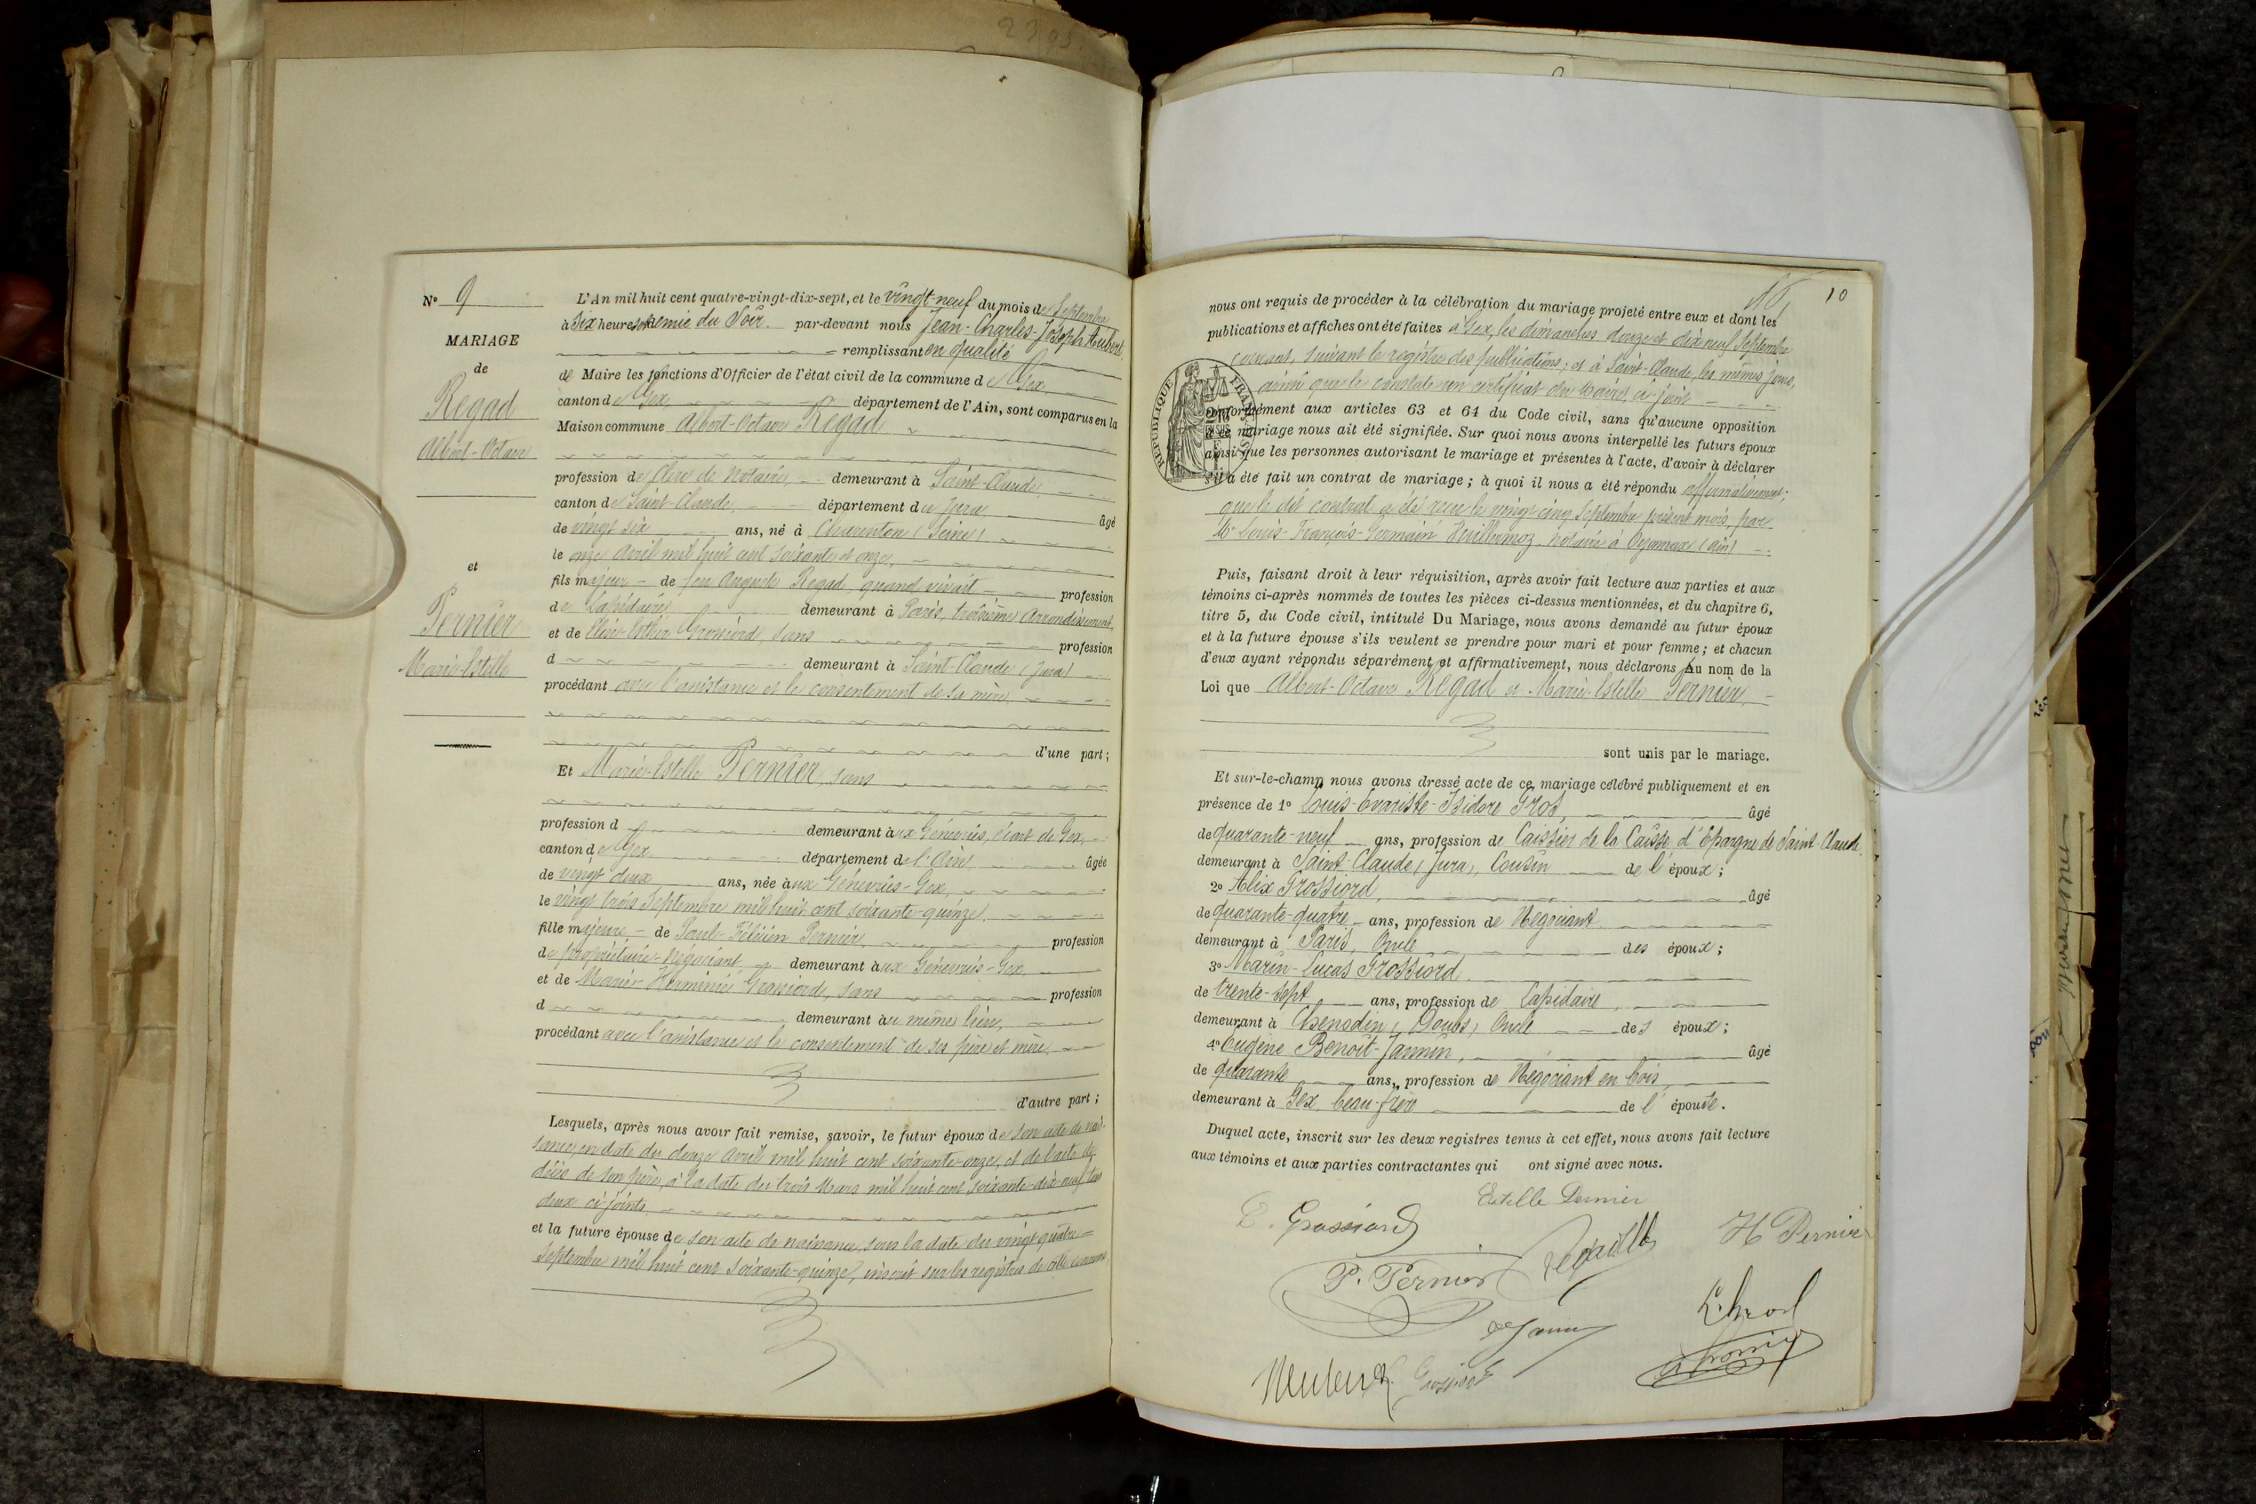 N° 9
MARIAGE
de
Regad
Albert-Octave
et
Pernier
Marie-Estelle
L'An mil huit cent quatre-vingt-dix-sept, et le vingt-neuf du mois de Septembre
à Six heures & demie du Soir. par-devant nous Jean-Charles-Joseph Hubert,
remplissant en qualité
de Maire les fonctions d'Officier de l'état civil de la commune de Gex
canton de Gex, département de l'Ain, sont comparus en la
Maison commune Albert-Octave Regad
profession de Clerc de Notaire, demeurant à Saint-Claude,
canton de Saint-Claude, département du Jura, âgé
de vingt six ans, né à Charenton (Seine)
le onze avril mil huit cent soixante et onze,
fils majeur de feu Auguste Regad, quand vivait profession
de Lapidaire demeurant à Paris, troisième Arrondissement,
et de Esther Grossiord, sans profession
d demeurant à Saint-Claude (Jura)
procédant avec l'assistance et le consentement de sa mère,
d'une part;
Et Marie-Estelle Pernier, sans
profession d demeurant aux Génevriés, écart de Gex,
canton de Gex département de l'Ain, âgée
de vingt deux ans, née aux Génevriés-Gex,
le vingt trois Septembre mil huit cent soixante-quinze,
fille majeure de Paul-Félicien Pernier, profession
de propriétaire-négociant demeurant aux Génevriés-Gex
et de Marie-Herminie Grossiord, sans profession
d demeurant au même lieu,
procédant avec l'assistance et le consentement de ses père et mère,
d'autre part;
Lesquels, après nous avoir fait remise, savoir, le futur époux de son acte de nais-
sance, en date du douze avril mil huit cent soixante-onze, et de l'acte de
décès de son père, à la date du trois Mars mil huit cent soixante-dix-neuf, tous
deux ci-joints,
et la future épouse de son acte de naissance, sous la date du vingt quatre
Septembre mil huit cent soixante-quinze, inscrit sur les registres de cette commune
10
nous ont requis de procéder à la célébration du mariage projeté entre eux et dont les
publications et affiches ont été faites à Gex, les dimanches douze et dix neuf Septembre
courant, suivant le registre des publications; et à Saint-Claude, les mêmes jours,
ainsi que le constate un certificat du Maire, ci-joint
REPUBLIQUE FRANÇAISE
conformément aux articles 63 et 64 du Code civil, sans qu'aucune opposition
à ce mariage nous ait été signifiée. Sur quoi nous avons interpellé les futurs époux
ainsi que les personnes autorisant le mariage et présentes à l'acte, d'avoir à déclarer
s'il a été fait un contrat de mariage; à quoi il nous a été répondu affirmativement;
que le dit contrat a été reçu le vingt cinq Septembre présent mois, par
Me Louis-François-Germain Vuillermoz, Notaire à Oyonnax (Ain)
Puis, faisant droit à leur réquisition, après avoir fait lecture aux parties et aux
témoins ci-après nommés de toutes les pièces ci-dessus mentionnées, et du chapitre 6,
titre 5, du Code civil, intitulé Du Mariage, nous avons demandé au futur époux
et à la future épouse s'ils veulent se prendre pour mari et pour femme; et chacun
d'eux ayant répondu séparément et affirmativement, nous déclarons Au nom de la
Loi que Albert-Octave Regad et Marie-Estelle Pernier,
sont unis par le mariage.
Et sur-le-champ nous avons dressé acte de ce mariage célébré publiquement et en
présence de 1° Louis-Evariste-Isidore Gros, âgé
de quarante-neuf ans, profession de Caissier de la Caisse d'Epargne de Saint Claude
demeurant à Saint Claude (Jura), Cousin de l'époux;
2° Alix Grossiord, âgé
de quarante-quatre ans, profession de Négociant
demeurant à Paris, Oncle des époux;
3° Marin-Lucas Grossiord
de trente-sept ans, profession de Lapidaire,
demeurant à (Doubs) Oncle des époux;
4° Eugène Benoît-Jannin, âgé
de quarante ans, profession de Négociant en bois,
demeurant à Gex, beau-frère de l'épouse.
Duquel acte, inscrit sur les deux registres tenus à cet effet, nous avons fait lecture
aux témoins et aux parties contractantes qui ont signé avec nous.
Estelle Pernier
E. Grossiord
H Pernier
P. Pernier
Grossiord